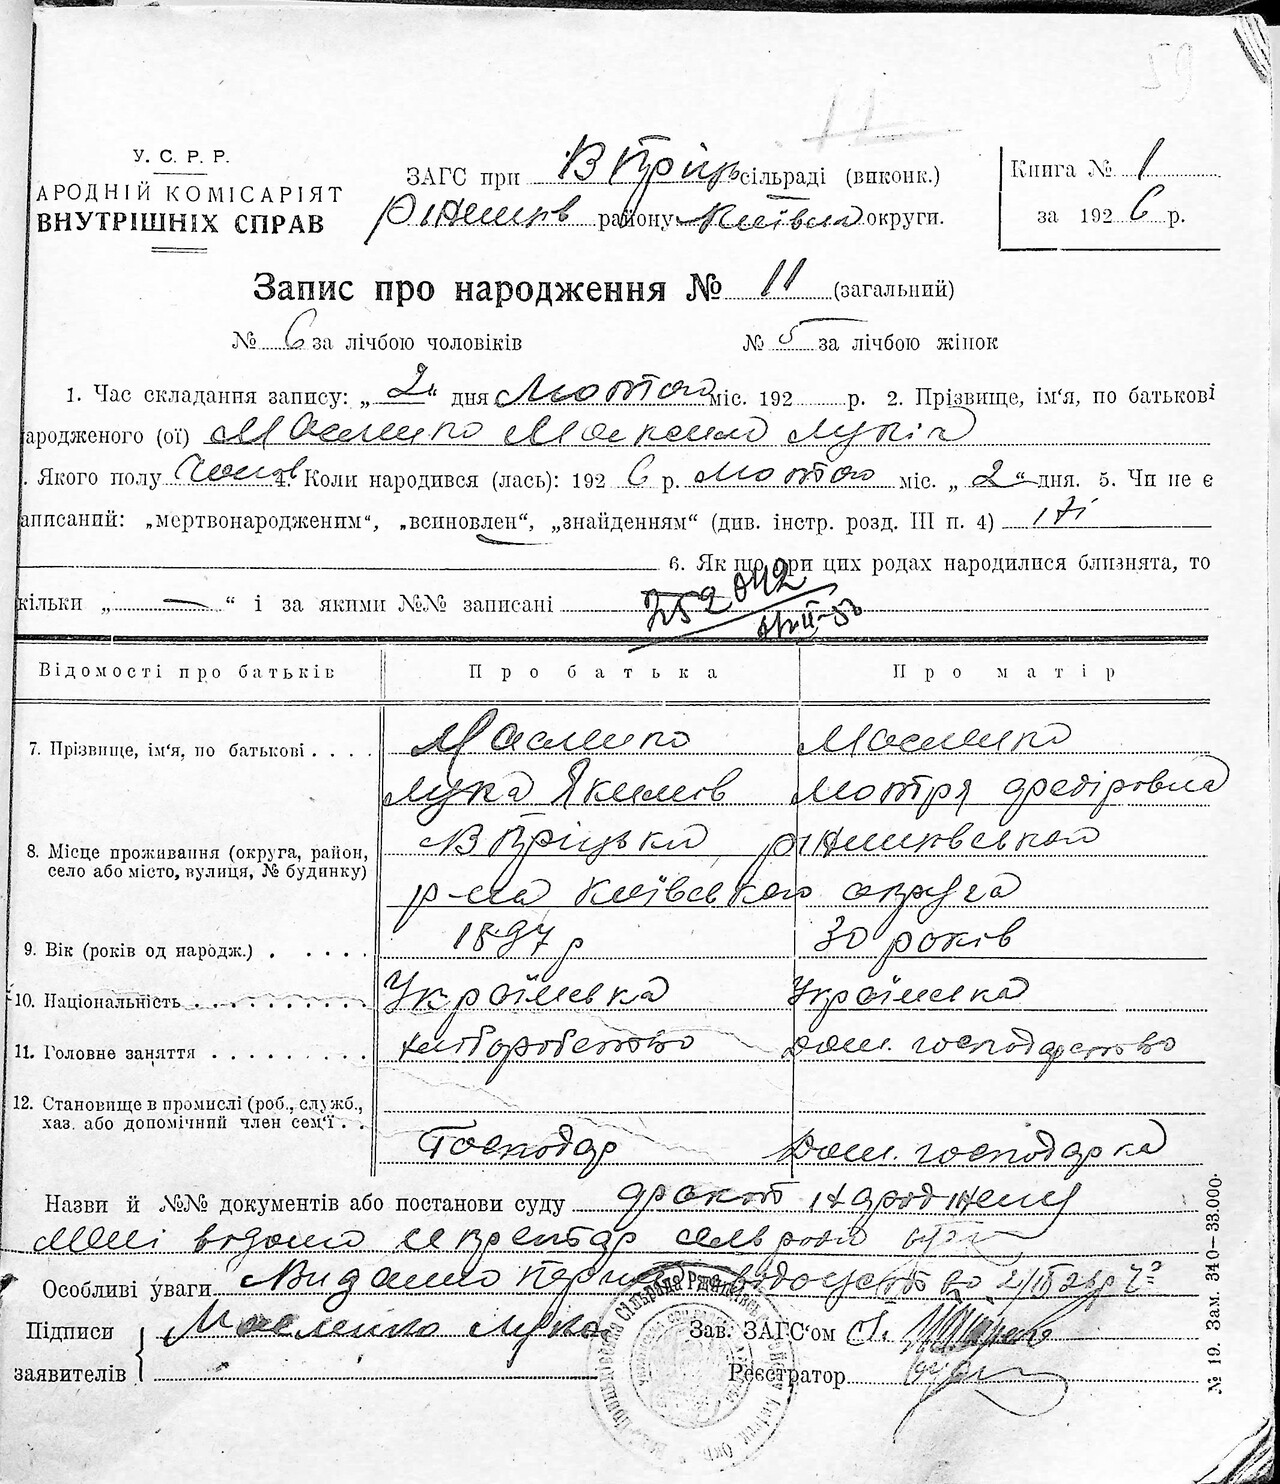 У. С. Р. Р.
АРОДНІЙ КОМІСАРІЯТ
ВНУТРІШНІХ СПРАВ
ЗАГС при В Пріцьк сільраді (виконк.)
району Київськ округи.
Книга № 1
за 1926 р.
Запис про народження № 11 (загальний)
№ 6 за лічбою чоловіків № 5 за лічбою жінок
1. Час складання запису: „2“ дня Лютого міс. 192 р. 2. Прізвище, ім‘я, по батькові
ародженого (ої) Масленко Максим Лукіч
. Якого полу Чолов 4. Коли народився (лась): 1926 р. Лютого міс. „2“ дня. 5. Чи не є
аписаний: „мертвонародженим“, „всиновлен“, „знайденням“ (див. інстр. розд. III п. 4) ні
6. Як що при цих родах народилися близнята, то
кільки „ — “ і за якими №№ записані
252042
Відомості про батьків Про батька Про матір
7. Прізвище, ім‘я, по батькові . . . . Масленко Масленко
Лука Якимов Мотря Федіровна
8. Місце проживання (округа, район,
село або місто, вулиця, № будинку)
р-на Київського округа
9. Вік (років од народж.) . . . . . 1897 р 30 років
10. Національність . . . . . . . . . Українська Українська
11. Головне заняття . . . . . . . . хліборобство дом. господарство
12. Становище в промислі (роб., служб.,
хаз. або допомічний член сем‘ї . .
Господар Дом. господарка
Назви й №№ документів або постанови суду факт народження
мені відомо секретар сільради
Особливі уваги Видано
Підписи
заявителів
Масленко Лука
Зав. ЗАГС‘ом
Реєстратор
№ 19. Зам. 340—33.000.